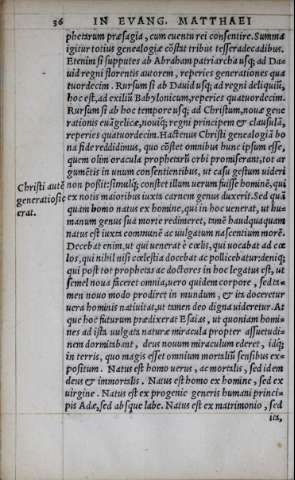 36 IN EVANG. MATTHAEI
phetarum præsagia, cum euentu rei consentire. Summa
igitur totius genealogiæ cōstat tribus tesseradecadibus.
Etenim si supputes ab Abraham patriarcha usq; ad Da=
uid regni florentis autorem, reperies generationes qua
tuordecim. Rursum si ab Dauid usq; ad regni deliquiū,
hoc est, ad exiliū Babylonicum, reperies quatuordecim.
Rursum si ab hoc tempore usq; ad Christum, nouæ gene
rationis euāgelicæ, nouiq; regni principem & clausulā,
reperies quatuordecim. Hactenus Christi genealogiā bo
na fide reddidimus, quo cōstet omnibus hunc ipsum esse,
quem olim oracula prophetarū orbi promiserant, tot ar
gumētis in unum consentientibus, ut casu gestum uideri
non possit: simulq; constet illum uerum fuisse hominē, qui
ex notis maioribus iuxta carnem genus duxerit. Sed quā
quam homo natus ex homine, qui in hoc uenerat, ut hu=
manum genus suā morte redimeret, tamē haudquaquam
natus est iuxta communē ac uulgatum nascentium morē.
Decebat enim, ut qui uenerat è cœlis, qui uocabat ad cœ
los, qui nihil nisi cœlestia docebat ac pollicebatur: deniq;
qui post tot prophetas ac doctores in hoc legatus est, ut
semel noua faceret omnia, uero quidem corpore, sed ta=
men nouo modo prodiret in mundum, & ita doceretur
uera hominis natiuitas, ut tamen deo digna uideretur. At
que hoc futurum prædixerat Esaias, ut quoniam homi=
nes ad ista uulgata naturæ miracula propter assuetudi=
nem dormitabant, deus nouum miraculum ederet, idq;
in terris, quo magis esset omnium mortaliū sensibus ex=
positum. Natus est homo uerus, ac mortalis, sed idem
deus & immortalis. Natus est homo ex homine, sed ex
uirgine. Natus est ex progenie generis humani princi=
pis Adæ, sed absque labe. Natus est ex matrimonio, sed
ita,
Christi autē
generatio sic
erat.